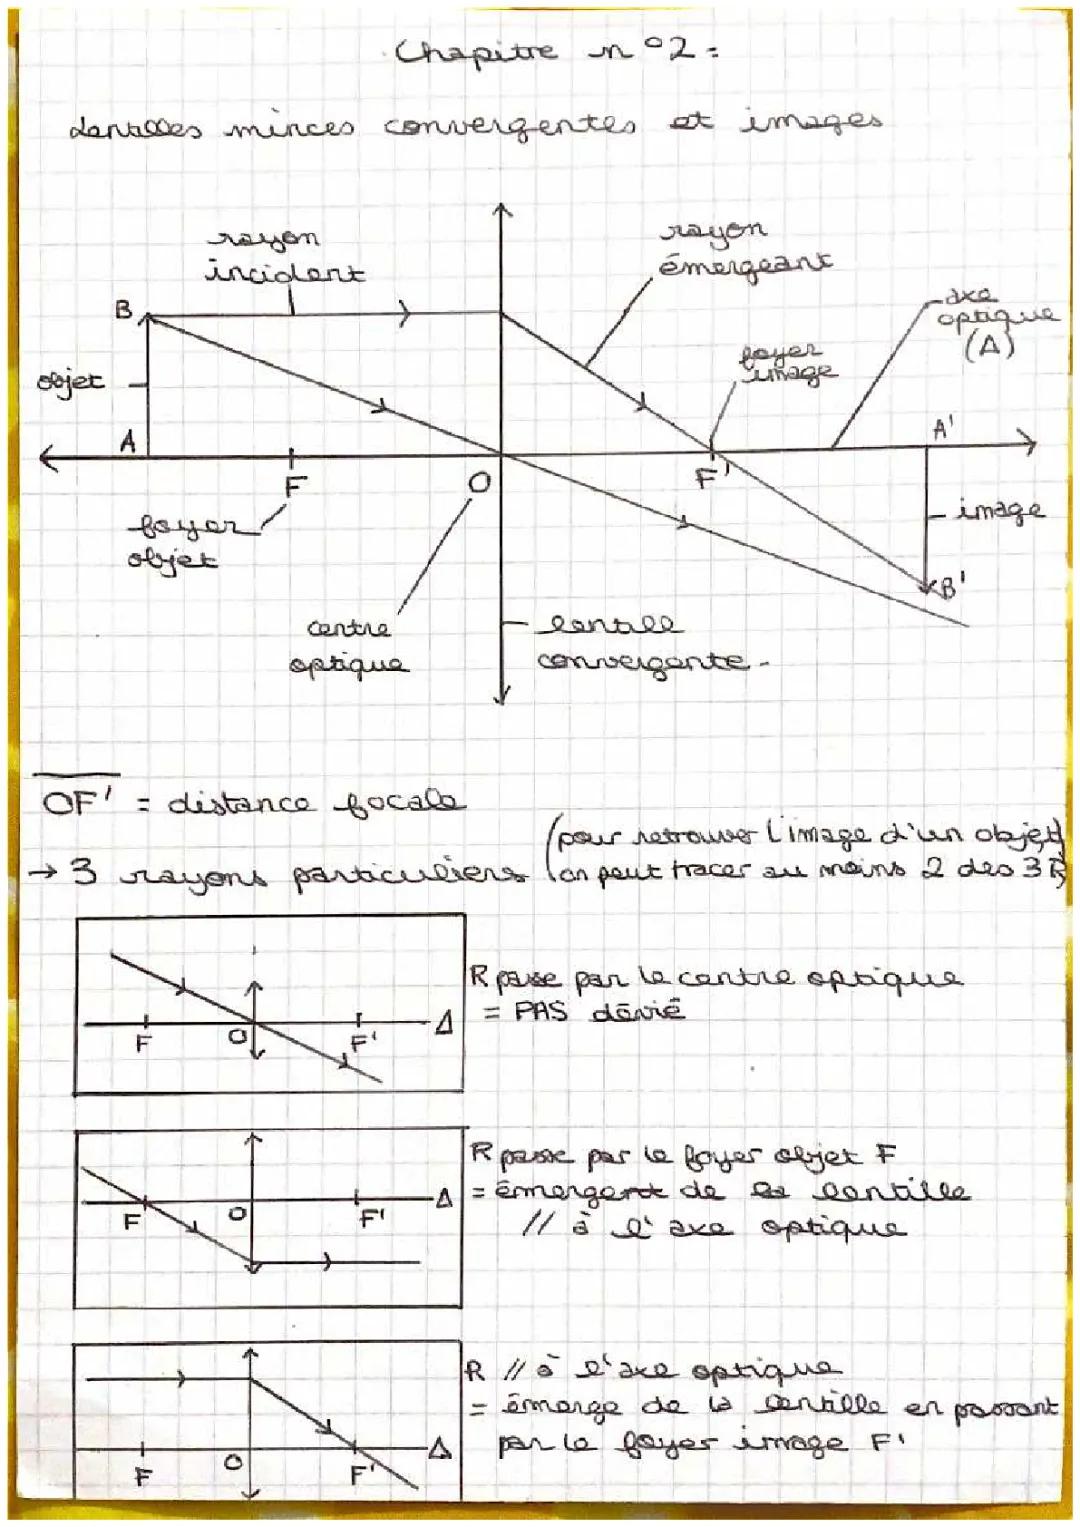 Chapitre n°2:
Lentilles minces convergentes et images
rayon
incident
rayon
émergeant
axe
optique
(Δ)
foyer
image
B
objet
A
A'
F
O
F'
foyer
objet
image
B'
centre
optique
lentille
convergente.
OF' = distance focale
(pour retrouver l'image d'un objet,
→ 3 rayons particuliers
on peut tracer au moins 2 des 3 R)
R passe par le centre optique
= PAS dévié
F O F' Δ
R passe par le foyer objet F
= émergent de la lentille
// à l'axe optique
F O F' Δ
R // à l'axe optique
= émerge de la lentille en passant
par le foyer image F'
F O F' Δ